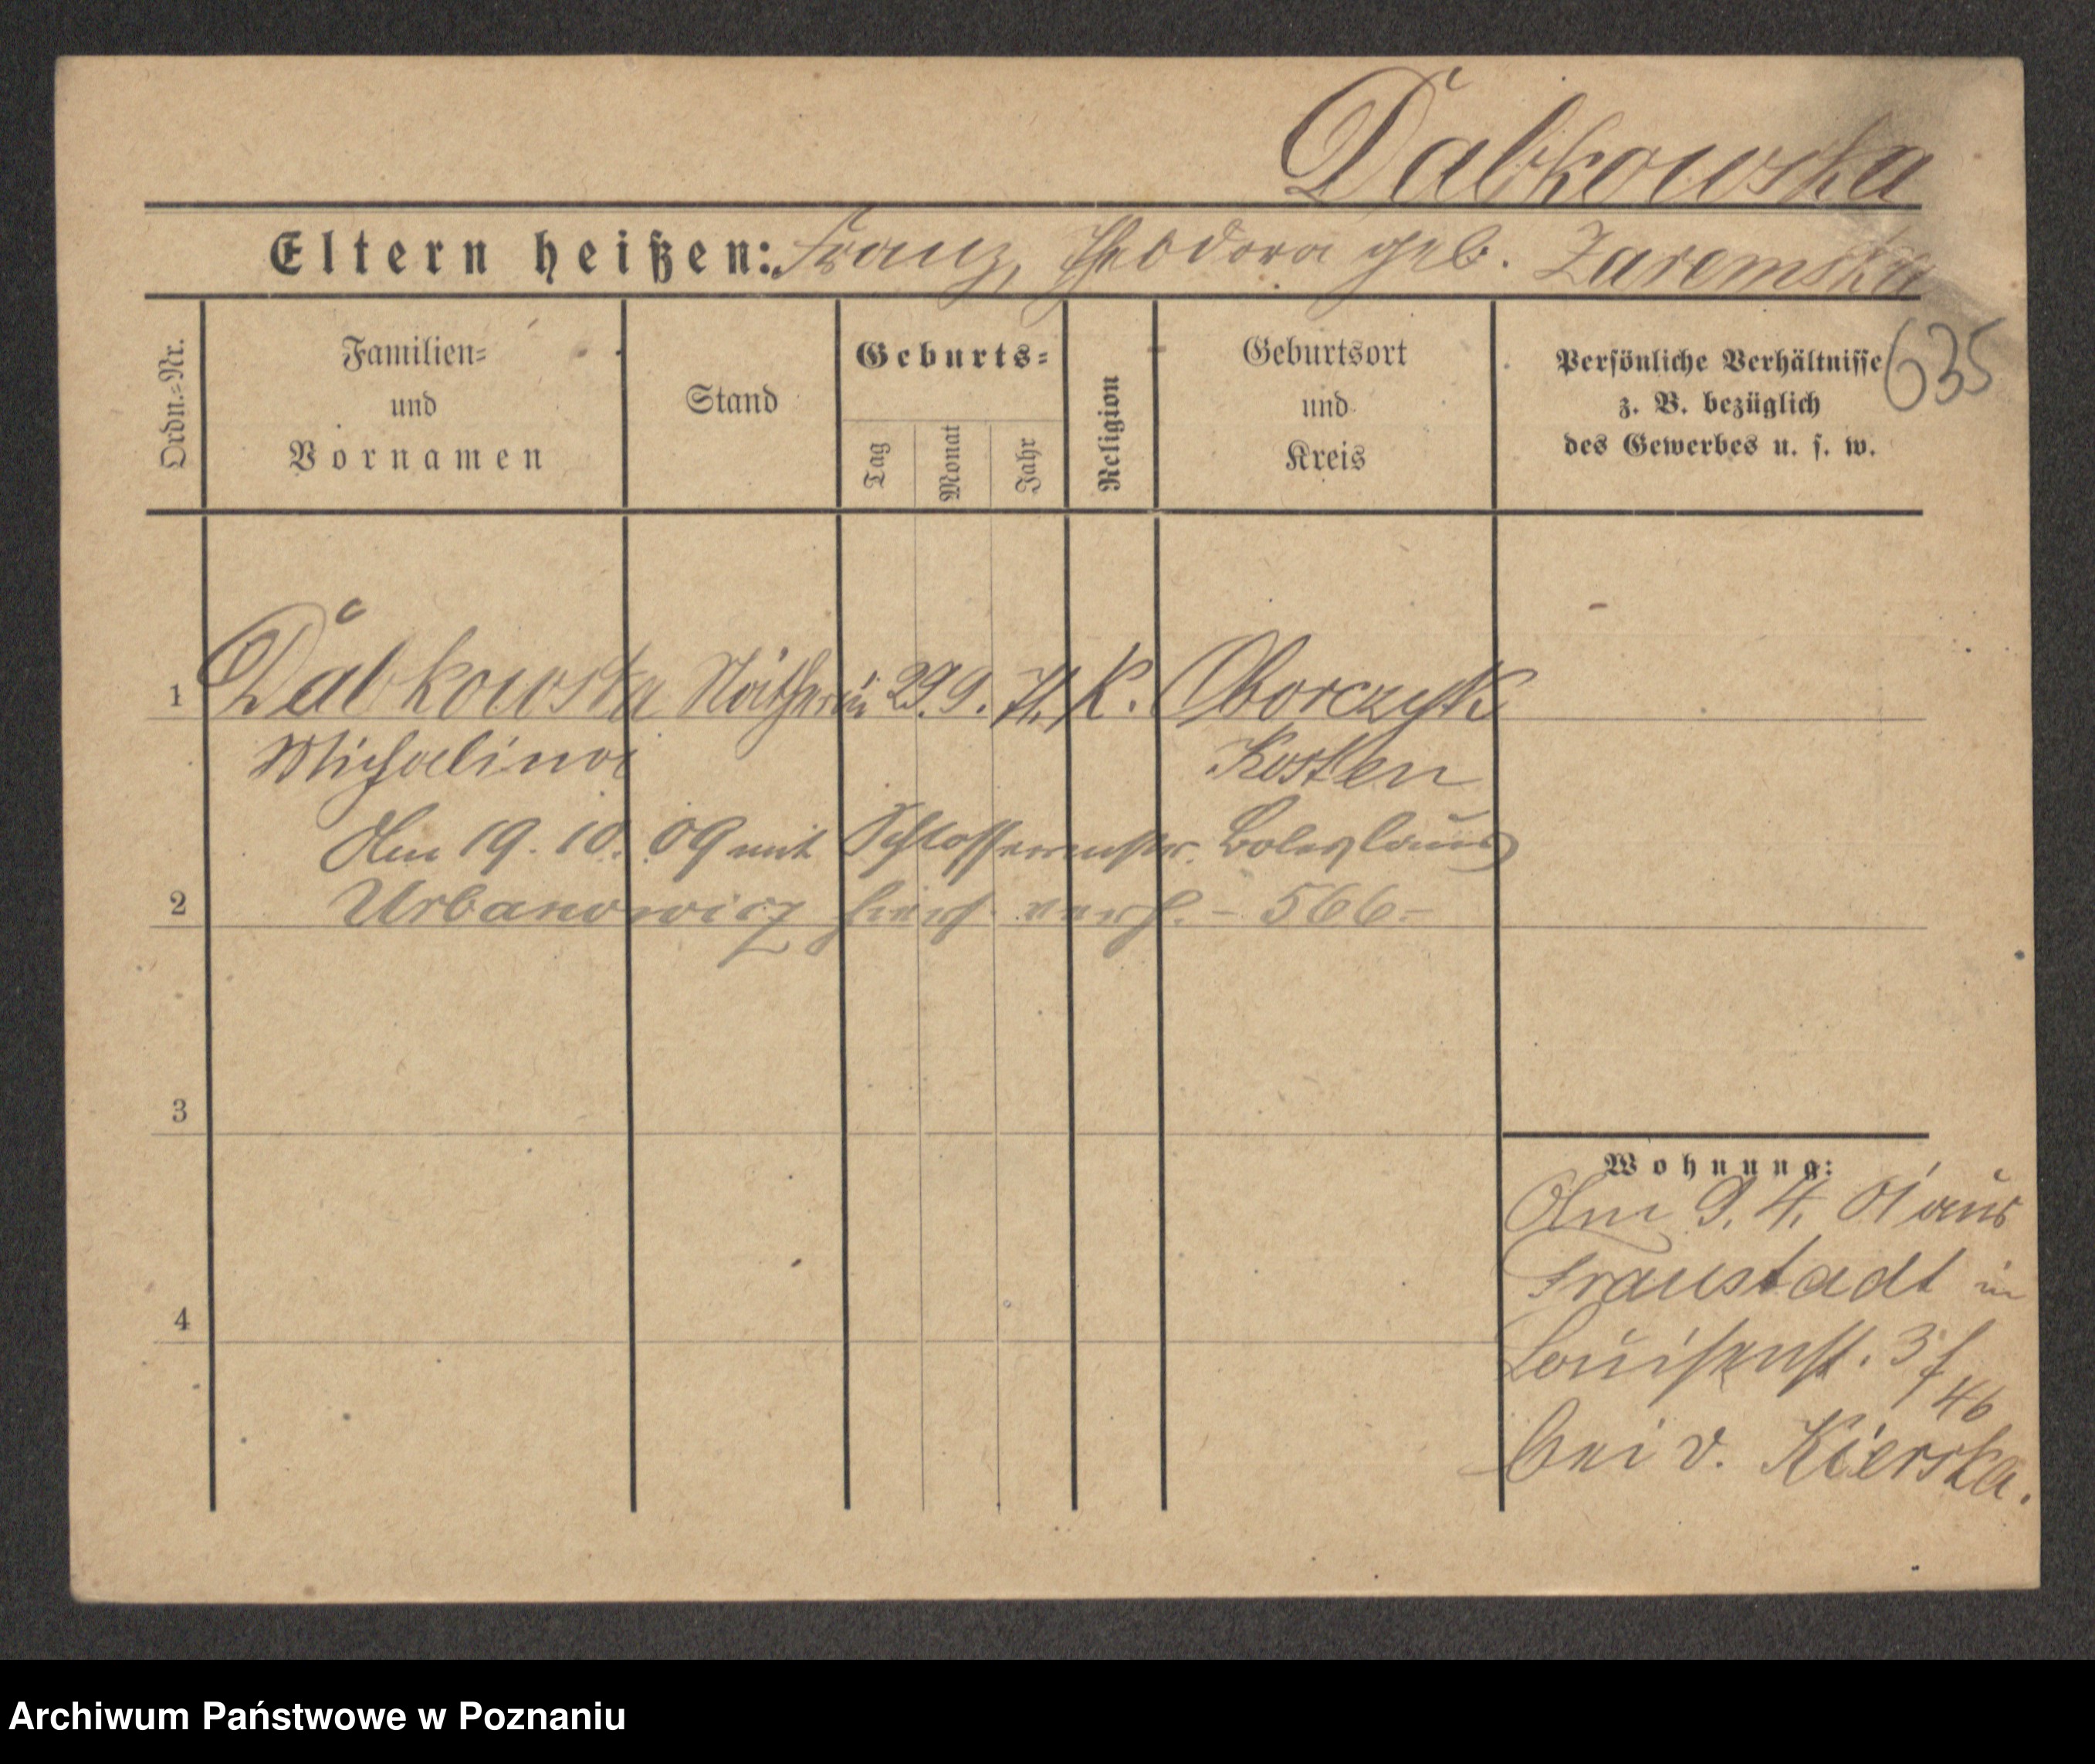 Dabkowska
Eltern heißen: Franz, Theodora geb. Zaremska
635
Ordn.=Nr.
Familien=
und
Vornamen
Stand
Geburts=
Tag
Monat
Jahr
Religion
Geburtsort
und
Kreis
Persönliche Verhältnisse
z. B. bezüglich
des Gewerbes u. s. w.
1 Dabkowska Nätherin 29. 9. 71. K. Oborczysk
Michalina Kosten
Am 19. 10. 09 mit Schlossermstr. Boleslaus
2 Urbanowicz hiers. verh. - 566 -
3
4
Wohnung:
Am 9. 4. 01 aus
Fraustadt in
Louisenst. 3 f
46
bei v. Kierska.
Archiwum Państwowe w Poznaniu